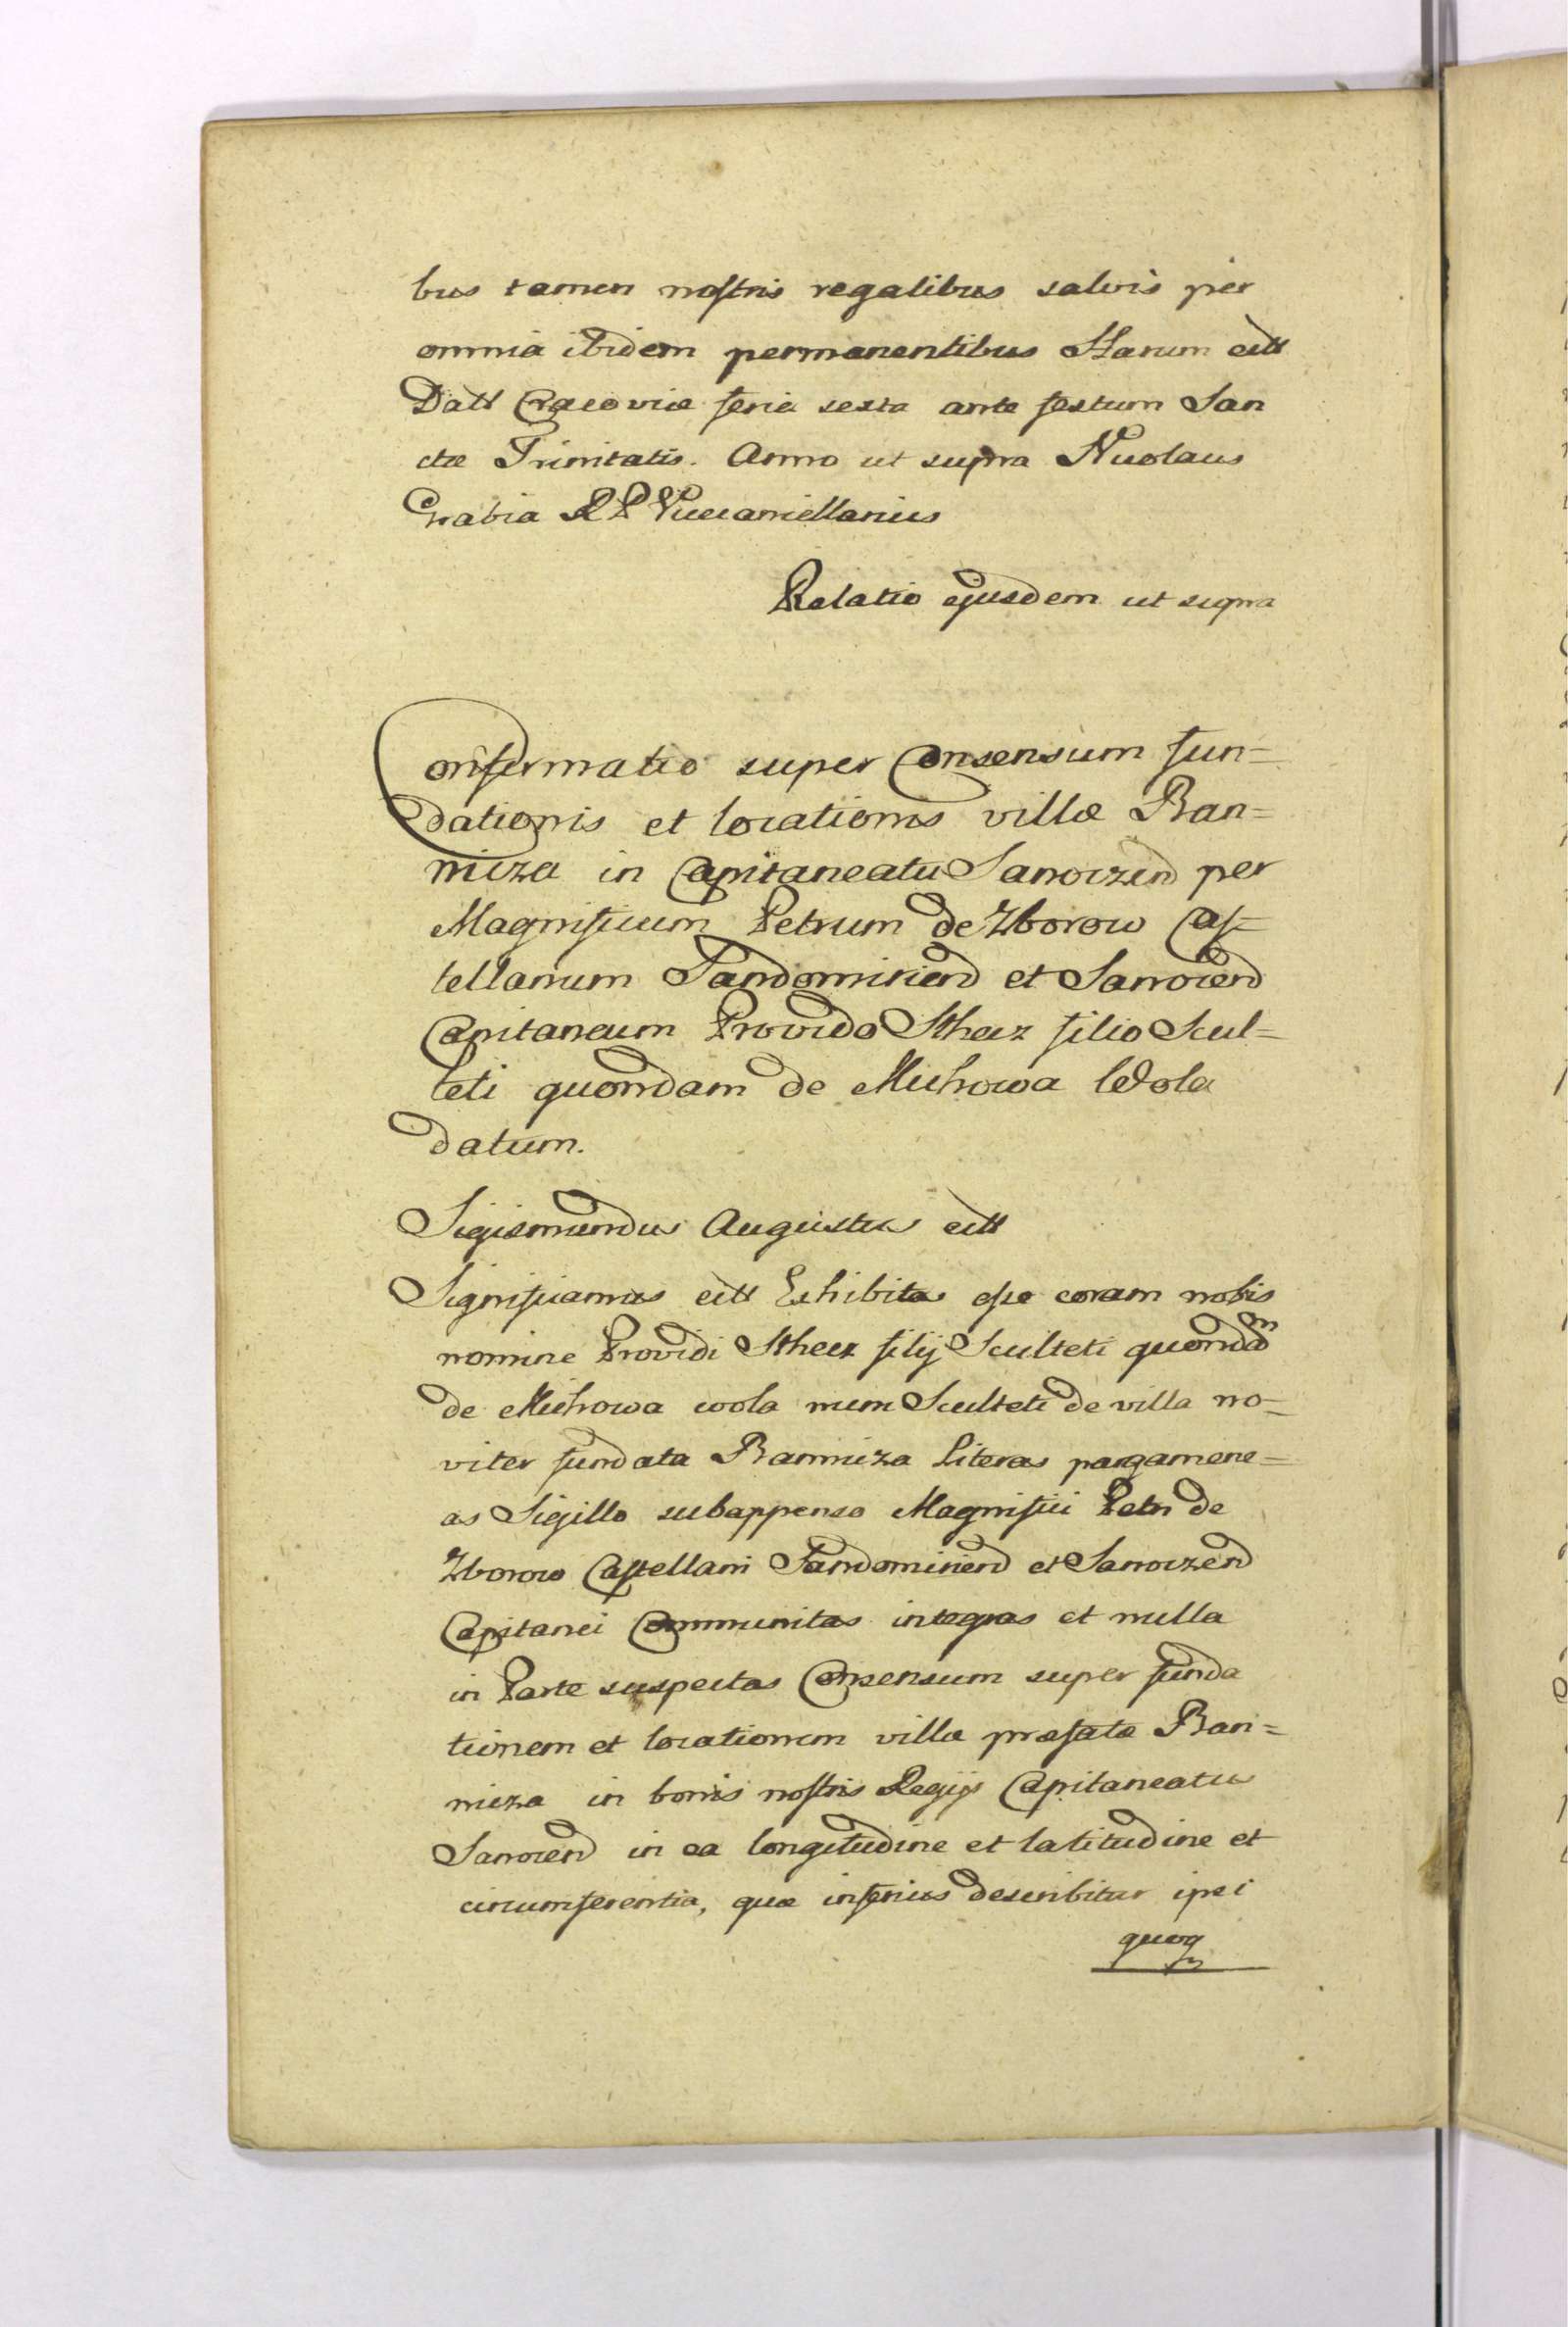 bus tamen nostris regalibus salvis per
omnia ibidem permanentibus Harum ett
Datt Cracoviæ feria sexta ante festum San
ctæ Trinitatis. Anno ut supra Nicolaus
Grabia RP Vicecancellarius
Relatio ejusdem ut supra
Confirmatio super Consensium fun=
dationis et locationis villæ Ban=
nicza in Capitaneatu Sanoczen per
Magnificum Petrum de Zborow Cas=
tellanum Sandomirien et Sanocen
Capitaneum Provido Sthecz filio Scul=
teti quondam de Michowa Wola
datum.
Sigismundus Augustus ett
Significamus ett Exhibitas esse coram nobis
nomine Providi Sthecz filij Sculteti quondam
de Michowa wola nunc Sculteti de villa no=
viter fundata Bannicza Literas pargamene=
as Sigillo subappenso Magnifici Petri de
Zborow Castellani Sandomirien et Sanoczen
Capitanei Communitas integras et nulla
in Parte suspectas Consensum super funda
tionem et locationem villæ præfatæ Ban=
nicza in bonis nostris Regijs Capitaneatu
Sanocen in ea longitudine et latitudine et
circumferentia, quæ inferius describitur ipsi
quoq